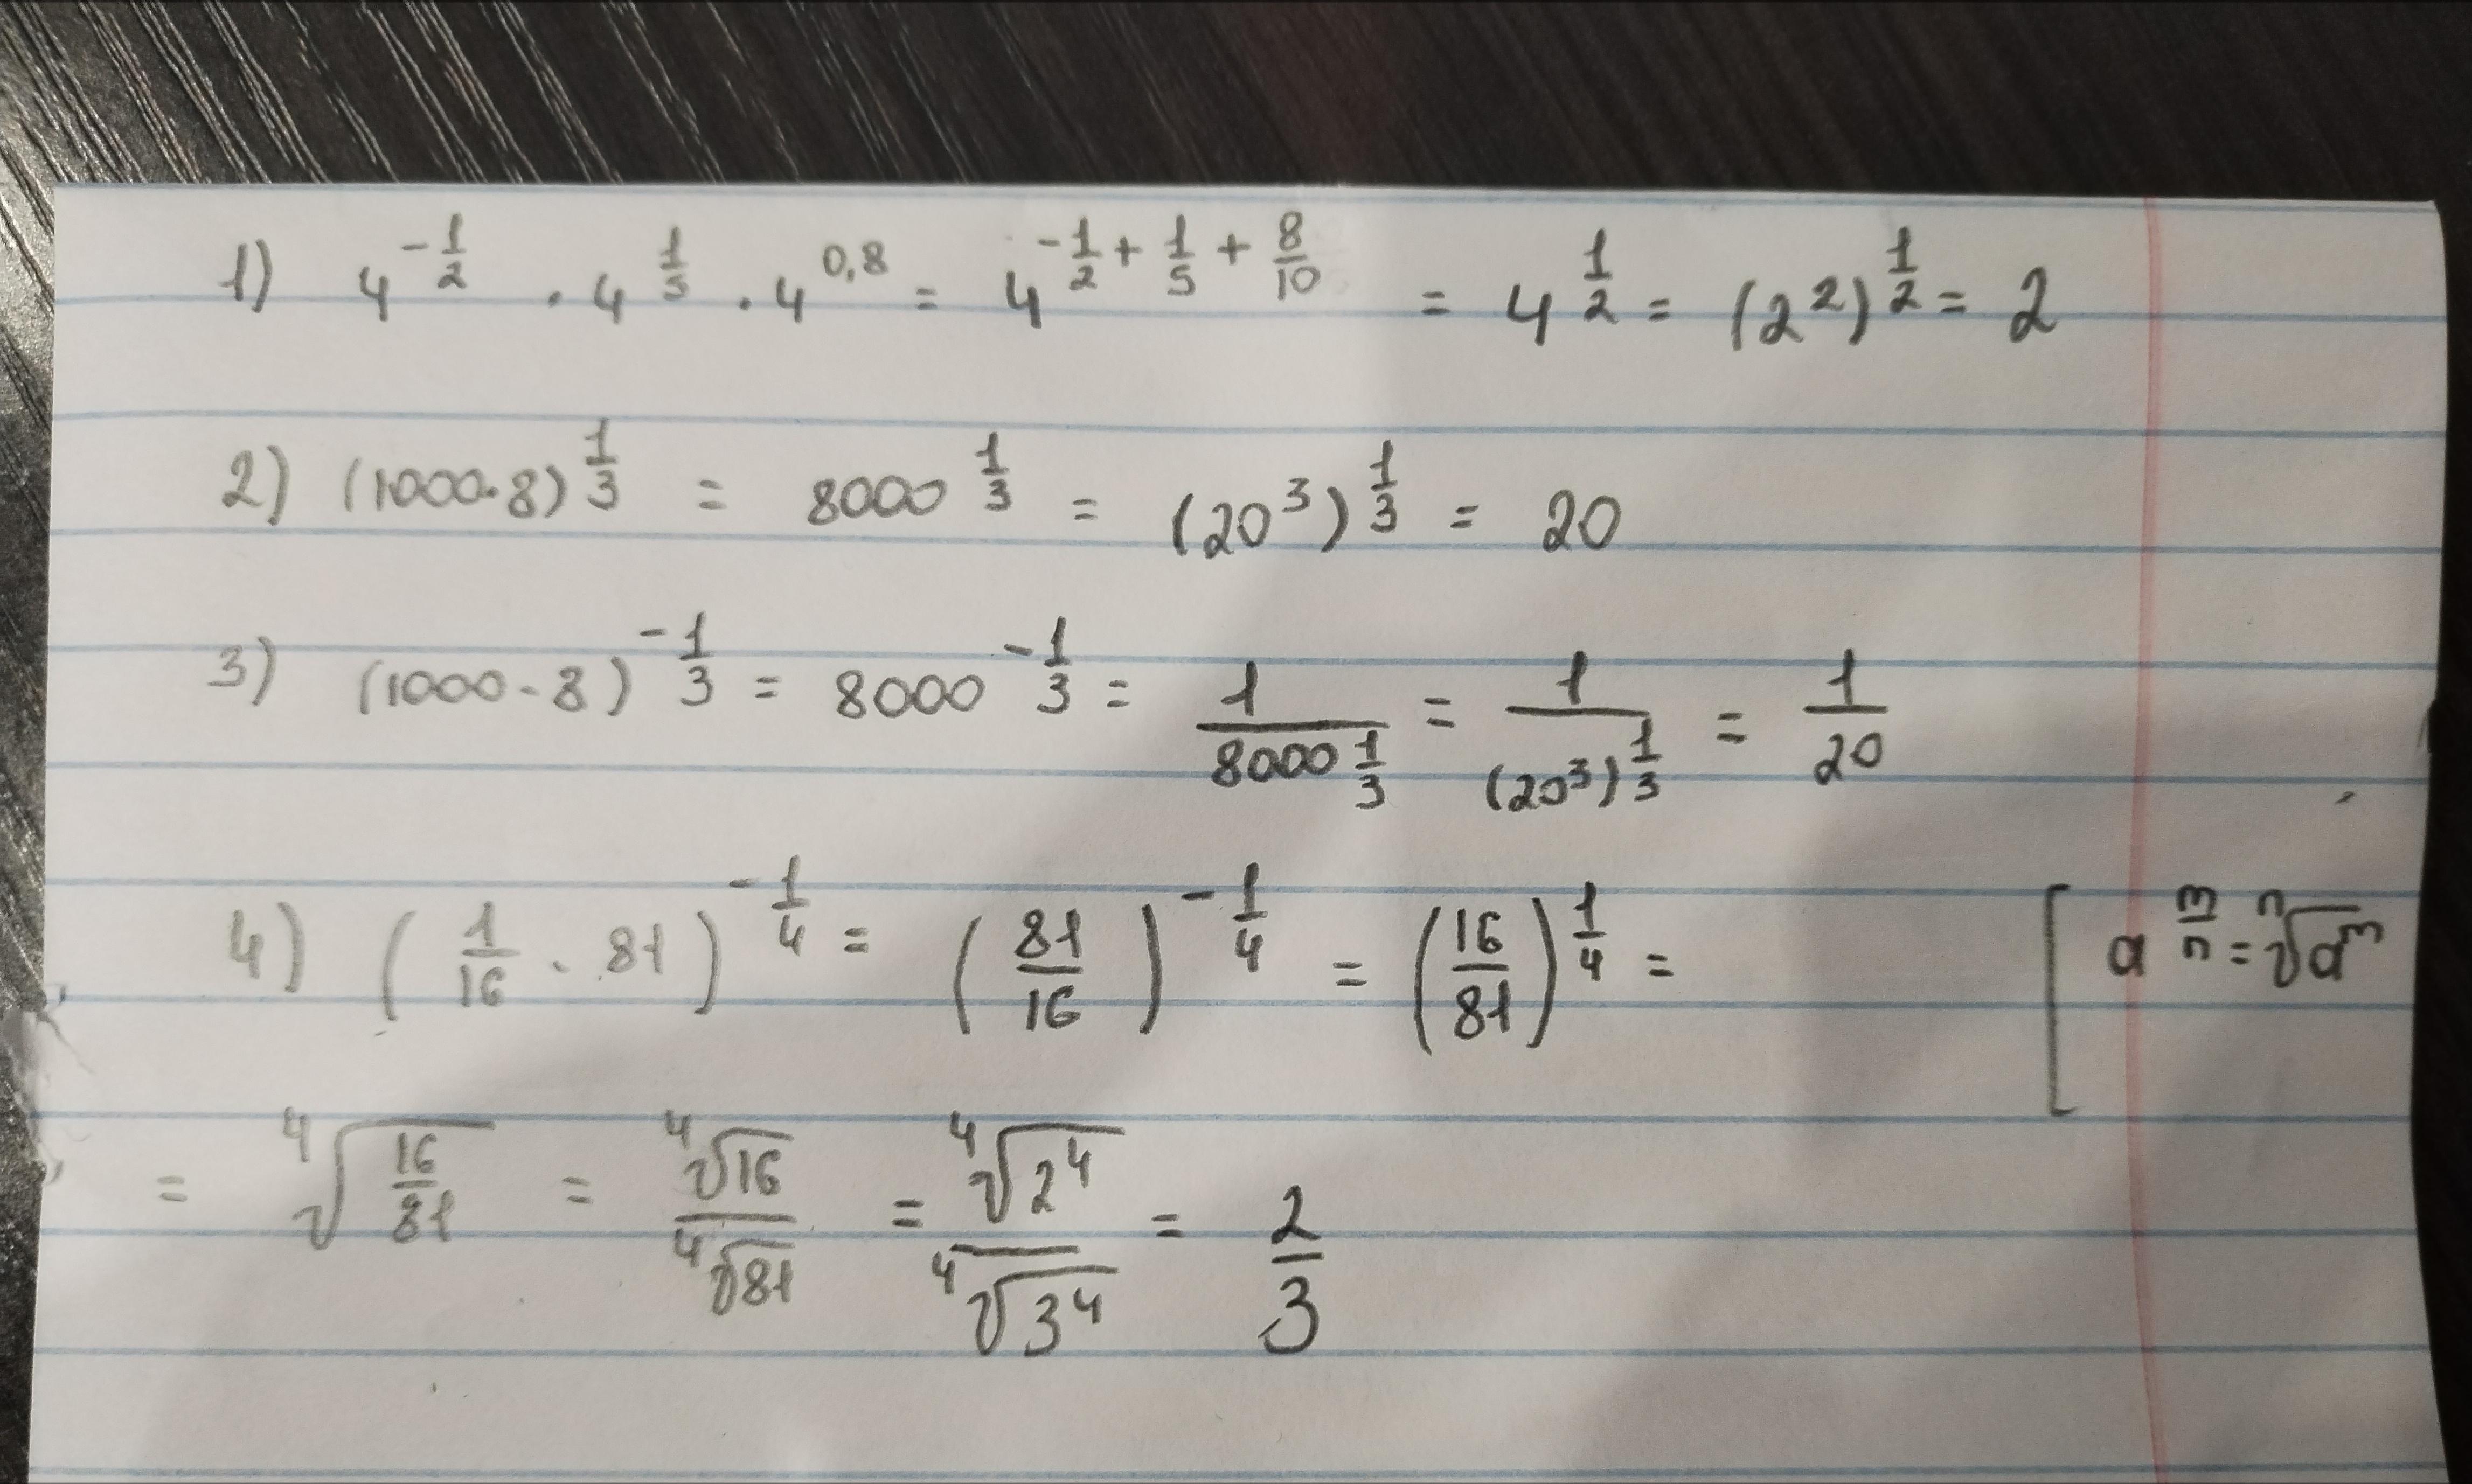 1) 4^{-\frac{1}{2}} · 4^{\frac{1}{5}} · 4^{0,8} = 4^{-\frac{1}{2} + \frac{1}{5} + \frac{8}{10}} = 4^{\frac{1}{2}} = (2^2)^{\frac{1}{2}} = 2
2) (1000·8)^{\frac{1}{3}} = 8000^{\frac{1}{3}} = (20^3)^{\frac{1}{3}} = 20
3) (1000·8)^{-\frac{1}{3}} = 8000^{-\frac{1}{3}} = \frac{1}{8000^{\frac{1}{3}}} = \frac{1}{(20^3)^{\frac{1}{3}}} = \frac{1}{20}
4) (\frac{1}{16} · 81)^{-\frac{1}{4}} = (\frac{81}{16})^{-\frac{1}{4}} = (\frac{16}{81})^{\frac{1}{4}} = [ a^{\frac{m}{n}} = \sqrt[n]{a^m}
= \sqrt[4]{\frac{16}{81}} = \frac{\sqrt[4]{16}}{\sqrt[4]{81}} = \frac{\sqrt[4]{2^4}}{\sqrt[4]{3^4}} = \frac{2}{3}